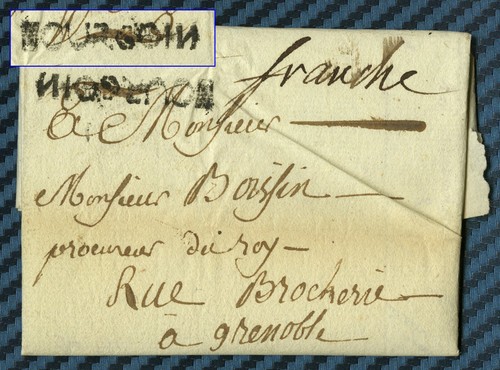 BOURGOIN
BOURGOIN
franche
A Monsieur
Monsieur Boissin
procureur du roy
Rue Brocherie
à grenoble